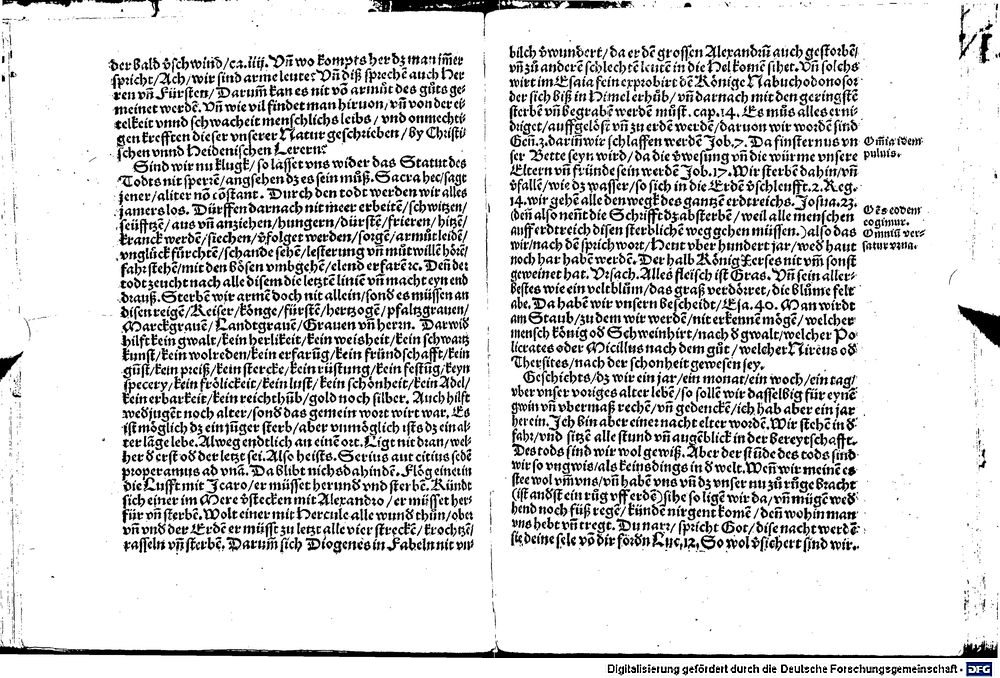 der bald v̈schwind/ca.iiij. Vn̄ wo kompts her dz man im̄er
spricht/Ach/wir sind arme leute? Vn̄ diß sprechē auch Her
ren vn̄ Fürsten/Darum̄ kan es nit vō armůt des gůts ge-
meinet werdē. Vn̄ wie vil findet man hiruon/vn̄ von der ei-
telkeit vnnd schwacheit menschlichs leibs/vnd onmechti-
gen krefften dieser vnserer Natur geschrieben/by Christi
schen vnnd Heidenischen Lerern?
Sind wir nu klugk/so lasset vns wider das Statut des
Todts nit sperrē/angsehen dz es sein můß. Sacra hec/sagt
jener/aliter nō cōstant. Durch den todt werden wir alles
jamers los. Dürffen darnach nit meer erbeitē/schwitzen/
seüfftzē/aus vn̄ anziehen/hungern/dürstē/frieren/hitzē/
kranck werdē/siechen/v̈folget werden/sorgē/armůt leidē/
vnglück fürchtē/schande sehē/lesterung vn̄ můtwillē hörē/
fahr stehē/mit den bösen vmbgehē/elend erfarē ꝛc. Deñ der
todt zeucht nach alle disem die letztē linie vn̄ macht eyn end
drauß. Sterbē wir armē doch nit allein/sond es müssen an
disen reigē/Keiser/könge/fürstē/hertzogē/pfaltzgrauen/
Marckgrauē/Landtgrauē/Grauen vn̄ herrn. Darwid
hilft kein gwalt/kein herlikeit/kein weisheit/kein schwartz
kunst/kein wolreden/kein erfarūg/kein fründschafft/kein
gůst/kein preiß/kein stercke/kein rüstung/kein festūg/keyn
specery/kein frölickeit/kein lust/kein schönheit/kein Adel/
kein erbarkeit/kein reichthüb/gold noch silber. Auch hilft
wed jugēt noch alter/sond das gemein wort wirt war. Es
ist möglich dz ein jūger sterb/aber vnmöglich ists dz ein al-
ter läge lebe. Alweg endtlich an einē ort. Ligt nit dran/wel-
her d erst od der letzt sei. Also heists. Serius aut citius sedē
properamus ad vnā. Da blibt nichs dahindē. Flög einer in
die Lufft mit Icaro/er müsset herund vnd sterbē. Kündt
sich einer im Mere v̈stecken mit Alexandro/er müsset her-
für vn̄ sterbē. Wolt einer mit Hercule alle wund thūn/obē
vn̄ vnd der Erdē er müsst zu letzt alle vier streckē/krochtzē/
rasseln vn̄ sterbē. Darum̄ sich Diogenes in Fabeln nit vn-
bilch v̈wundert/da er dē grossen Alexandrū auch gestorbē/
vn̄ zů anderē schlechtē leutē in die Hel komē sihet. Vn̄ solchs
wirt im Esaia fein exprobirt dē Könige Nabuchodonosor
der sich biß in Himel erhůb/vn̄ darnach mit den geringstē
sterbē vn̄ begrabē werdē můst. cap.14. Es můs alles erni-
driget/auffgelöst vn̄ zu erdē werdē/daruon wir wordē sind
Gen.3. darin̄ wir schlaffen werdē Job.7. Da finsternus vn
ser Bette seyn wird/da die v̈wesung vn̄ die würme vnsere
Eltern vn̄ fründe sein werdē Job.17. Wir sterbē dahin/vn̄
v̈fallē/wie dz wasser/so sich in die Erdē v̈schleufft. 2. Reg.
14. wir gehē alle den wegk des gantzē erdtreichs. Josua.23.
(deñ also neñt die Schrifft dz absterbē/weil alle menschen
auff erdtreich disen sterblichē weg gehen müssen.) also das
wir/nach dē sprichwort/Heut vber hundert jar/wed haut
noch har habē werdē. Der halb König Xerses nit vm̄ sonst
geweinet hat. Vrsach. Alles fleisch ist Gras. Vn̄ sein aller-
bestes wie ein veltblům/das graß verdörret/die blůme felt
abe. Da habē wir vnsern bescheidt/Esa.40. Man wirdt
am Staub/zu dem wir werdē/nit erkennē mögē/welcher
mensch könig od Schweinhirt/nach d gwalt/welcher Po
licrates oder Micillus nach dem gůt/welcher Nireus od
Thersites/nach der schonheit gewesen sey.
Geschichts/dz wir ein jar/ein monat/ein woch/ein tag/
vber vnser voriges alter lebē/so sollē wir dasselbig für eynē
gwin vn̄ vbermaß rechē/vn̄ gedenckē/ich hab aber ein jar
herein. Ich bin aber einer nacht elter wordē. Wir stehē in d
fahr/vnd sitzē alle stund vn̄ augēblick in der bereytschafft.
Des tods sind wir wol gewiß. Aber der stūde des tods sind
wir so vngwis/als keins dings in d welt. Weñ wir meinē es
stee wol vm̄ vns/vn̄ habē vns vn̄ dz vnser nu zů růge bracht
(ist andst ein růg vff erdē) sihe so ligē wir da/vn̄ mügē wed
hend noch füß regē/kündē nirgent komē/deñ wohin man
vns hebt vn̄ tregt. Du narr/spricht Got/dise nacht werdē
sie deine sele vō dir fördn Luc.12. So wol v̈sichert sind wir.
Om̄ia idem
puluis.
Oēs eodem
cogimur.
Omniū ver-
satur vrna.
Digitalisierung gefördert durch die Deutsche Forschungsgemeinschaft - DFG